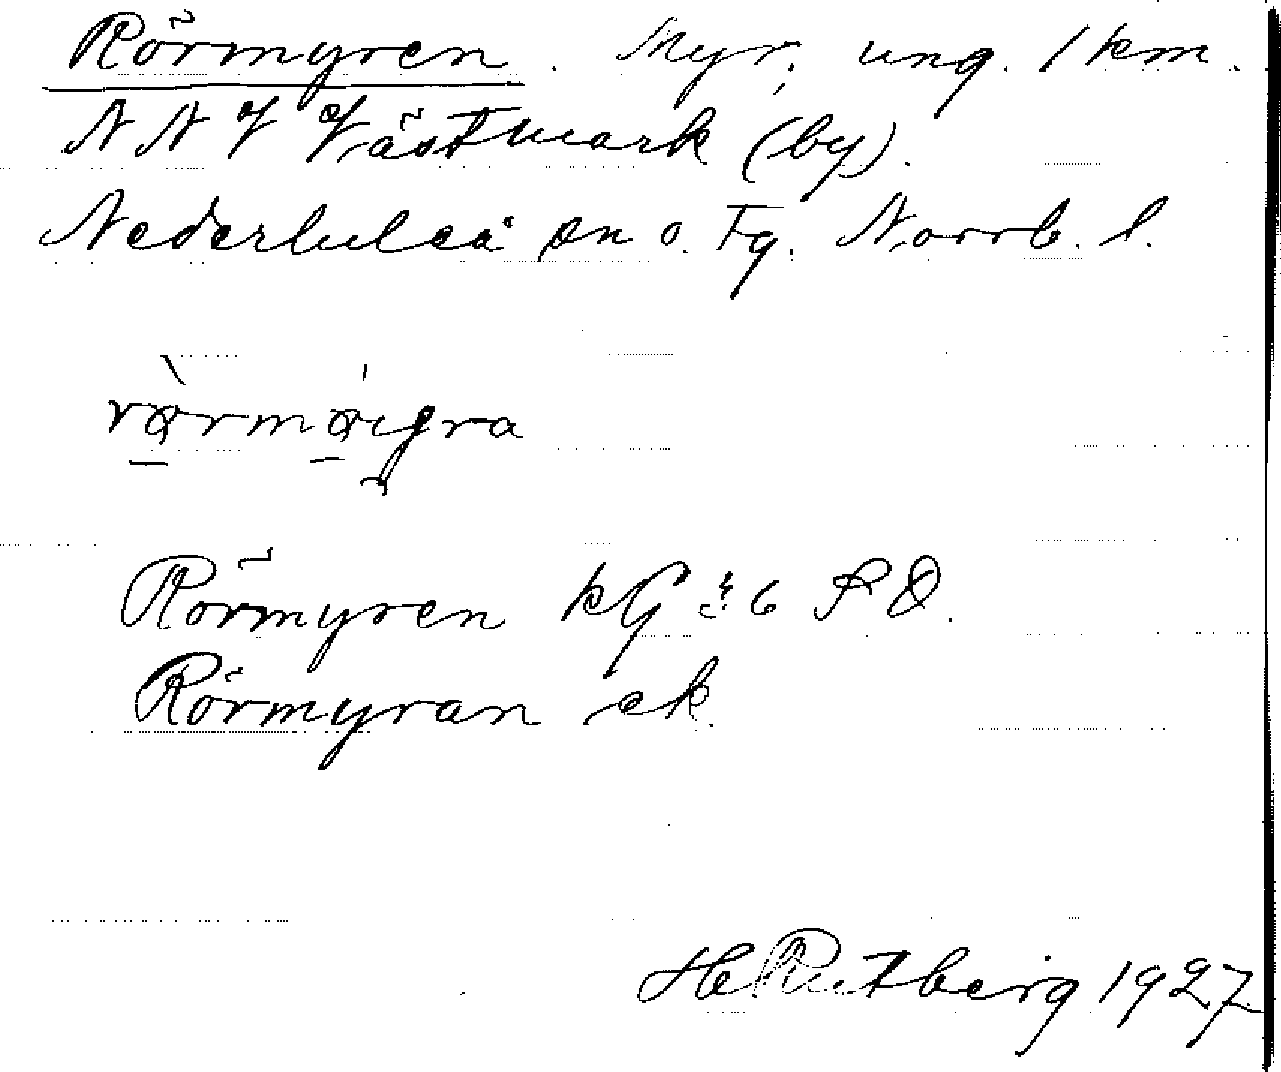 Rörmyren. Myr, ung. 1 km.
NNV Västmark (by).
Nederluleå sn o. Tg. Norrb. l.
rø̀rmøigra
Rörmyren kG 6 SO.
Rörmyran ek.
H Rutberg 1927